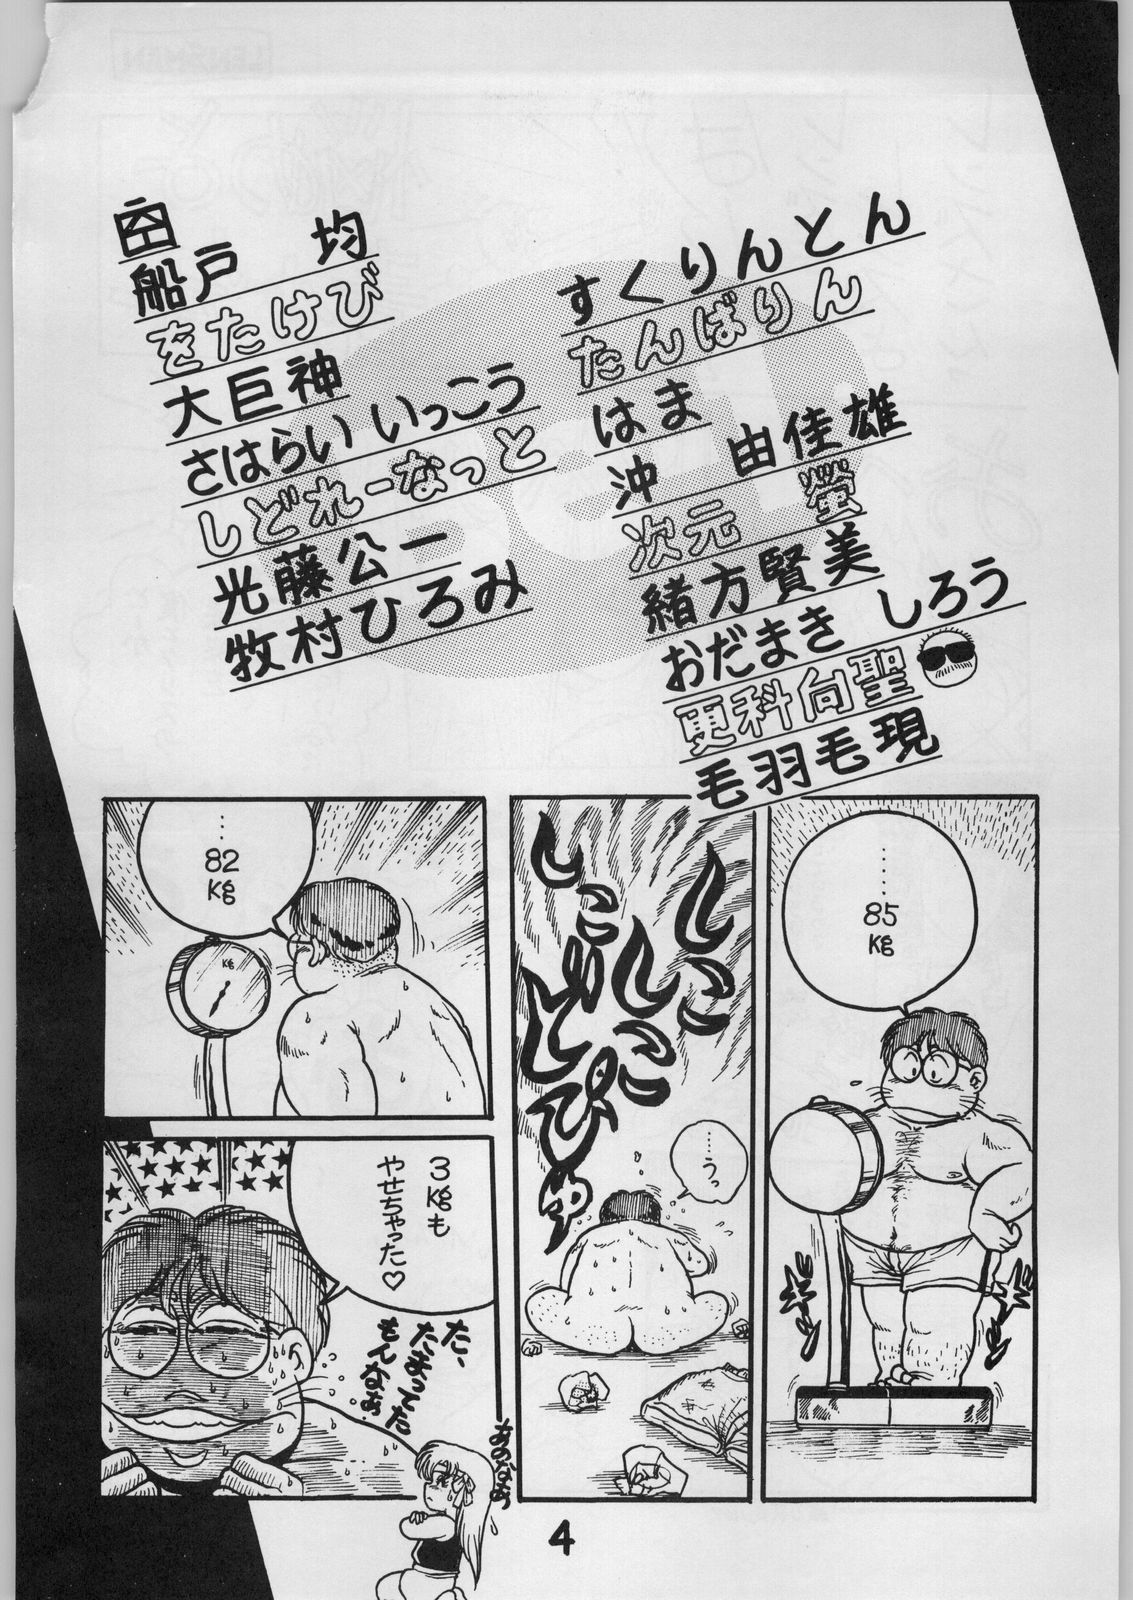 船戸　均
をたけび
大巨神
さはらい いっこう
しどれーなっと
光藤公一
牧村ひろみ
すくりんとん
たんばりん
はま
沖　由佳雄
次元　螢
緒方賢美
おだまき しろう
更科向聖
毛羽毛現
………
85
kg
しこ
しこ
しこ
……うっ
…
82
kg
kg
3kgも
やせちゃった♡
た、
たまってた
もんなぁ…
あのなぁ
4